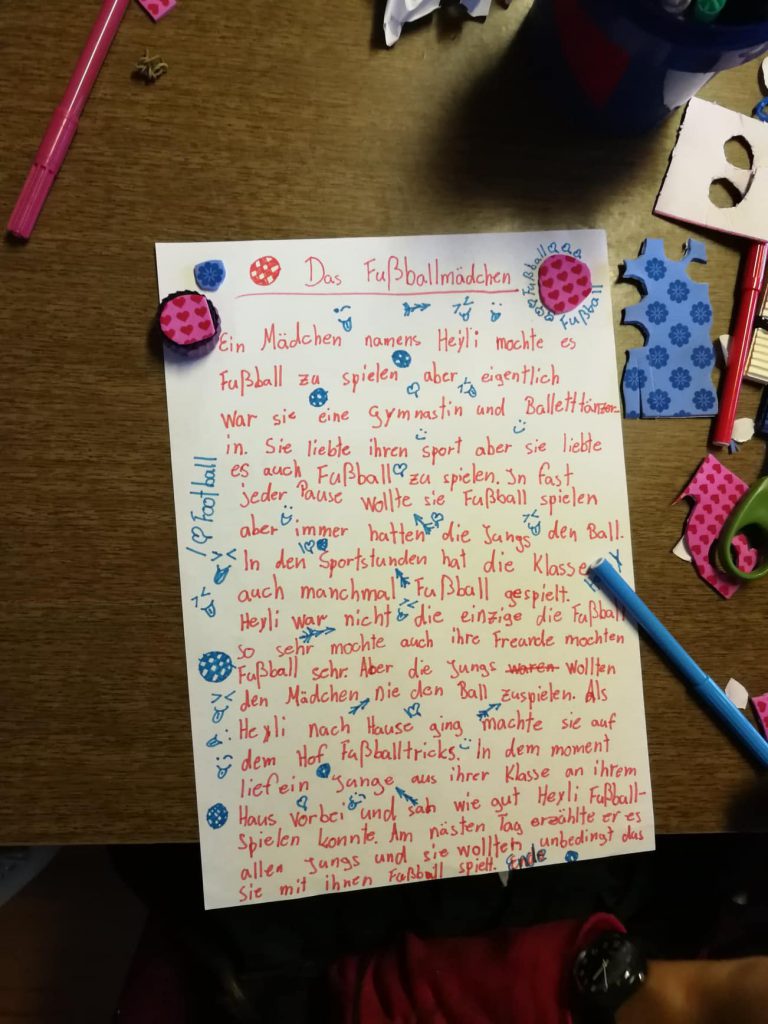 Das Fußballmädchen
Fußball
Fußball
Ein Mädchen namens Heyli mochte es
Fußball zu spielen aber eigentlich
war sie eine Gymnastin und Balletttänzer-
in. Sie liebte ihren sport aber sie liebte
es auch Fußball zu spielen. In fast
jeder Pause wollte sie Fußball spielen
aber immer hatten die Jungs den Ball.
In den Sportstunden hat die Klasse
auch manchmal Fußball gespielt.
Heyli war nicht die einzige die Fußball
so sehr mochte auch ihre Freunde mochten
Fußball sehr. Aber die Jungs waren wollten
den Mädchen nie den Ball zuspielen. Als
Heyli nach Hause ging machte sie auf
dem Hof Fußballtricks. In dem moment
lief ein Junge aus ihrer Klasse an ihrem
Haus vorbei und sah wie gut Heyli Fußball-
spielen konnte. Am nästen Tag erzählte er es
allen Jungs und sie wollten unbedingt das
Sie mit ihnen Fußball spielt. Ende
I Football